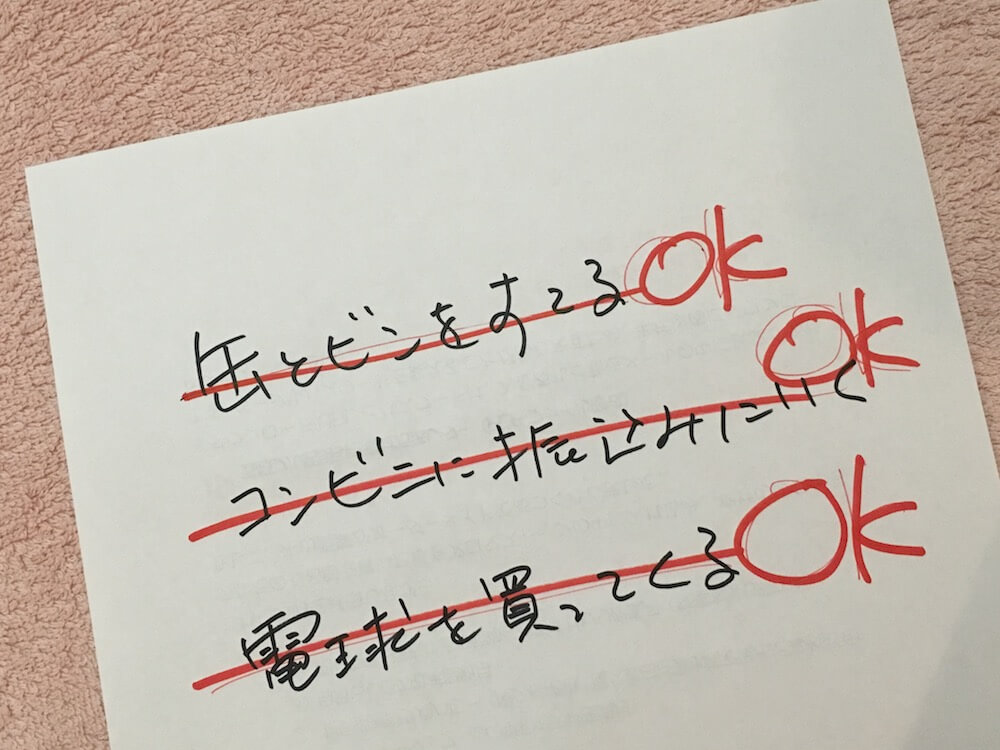 缶とビンをすてるOK
コンビニに振込みにいくOK
電球を買ってくるOK